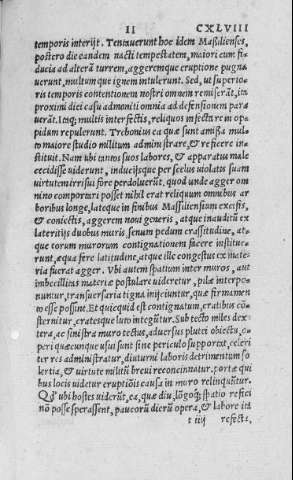 II CXLVIII
temporis interijt. Tentauerunt hoc idem Massilienses,
postero die eandem nacti tempestatem, maiori cum fi-
ducia ad alterā turrem, aggeremque eruptione pugna
uerunt, multumque ignem intulerunt. Sed, ut superio-
ris temporis contentionem nostri omnem remiserāt, ita
proximi diei casu admoniti omnia ad defensionem para
uerāt. Itaq; multis interfectis, reliquos infecta re in op-
pidum repulerunt. Trebonius ea quæ sunt amissa mul-
to maiore studio militum administrare, & reficere in
stituit. Nam ubi tantos suos labores, & apparatus male
cecidisse uiderunt, inducijsque per scelus uiolatis suam
uirtutem irrisui fore perdoluerūt, quod unde agger om
nino comportari posset nihil erat reliquum omnibus ar
boribus longe, lateque in finibus Massiliensium excisis,
& coniectis, aggerem noui generis, atque inauditū ex
lateritijs duobus muris senum pedum crassitudine, at-
que eorum murorum contignationem facere institue-
runt, æqua fere latitudine, atque ille congestus ex mate-
ria fuerat agger. Vbi autem spatium inter muros, aut
imbecillitas materiæ postulare uideretur, pilæ interpo-
nuntur, transuersaria tigna inijciuntur, quæ firmamen
to esse possint. Et quicquid est contignatum, cratibus cō
sternitur, cratesque luto integūtur. Sub tecto miles dex-
tera, ac sinistra muro tectus, aduersus plutei obiectu, o-
peri quæcunque usui sunt sine periculo supportat, celeri
ter res administratur, diuturni laboris detrimentum so
lertia, & uirtute militū breui reconcinnatur. portæ qui
bus locis uidetur eruptiōis causa in muro relinquūtur.
Qd' ubi hostes uiderūt, ea, quæ diu, lōgoq; spatio refici
nō posse sperassent, paucorū dierū opera, & labore ita
t iij refecta,